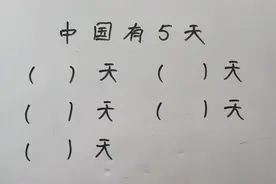 中国有5天
( ) 天 ( ) 天
( ) 天 ( ) 天
( ) 天